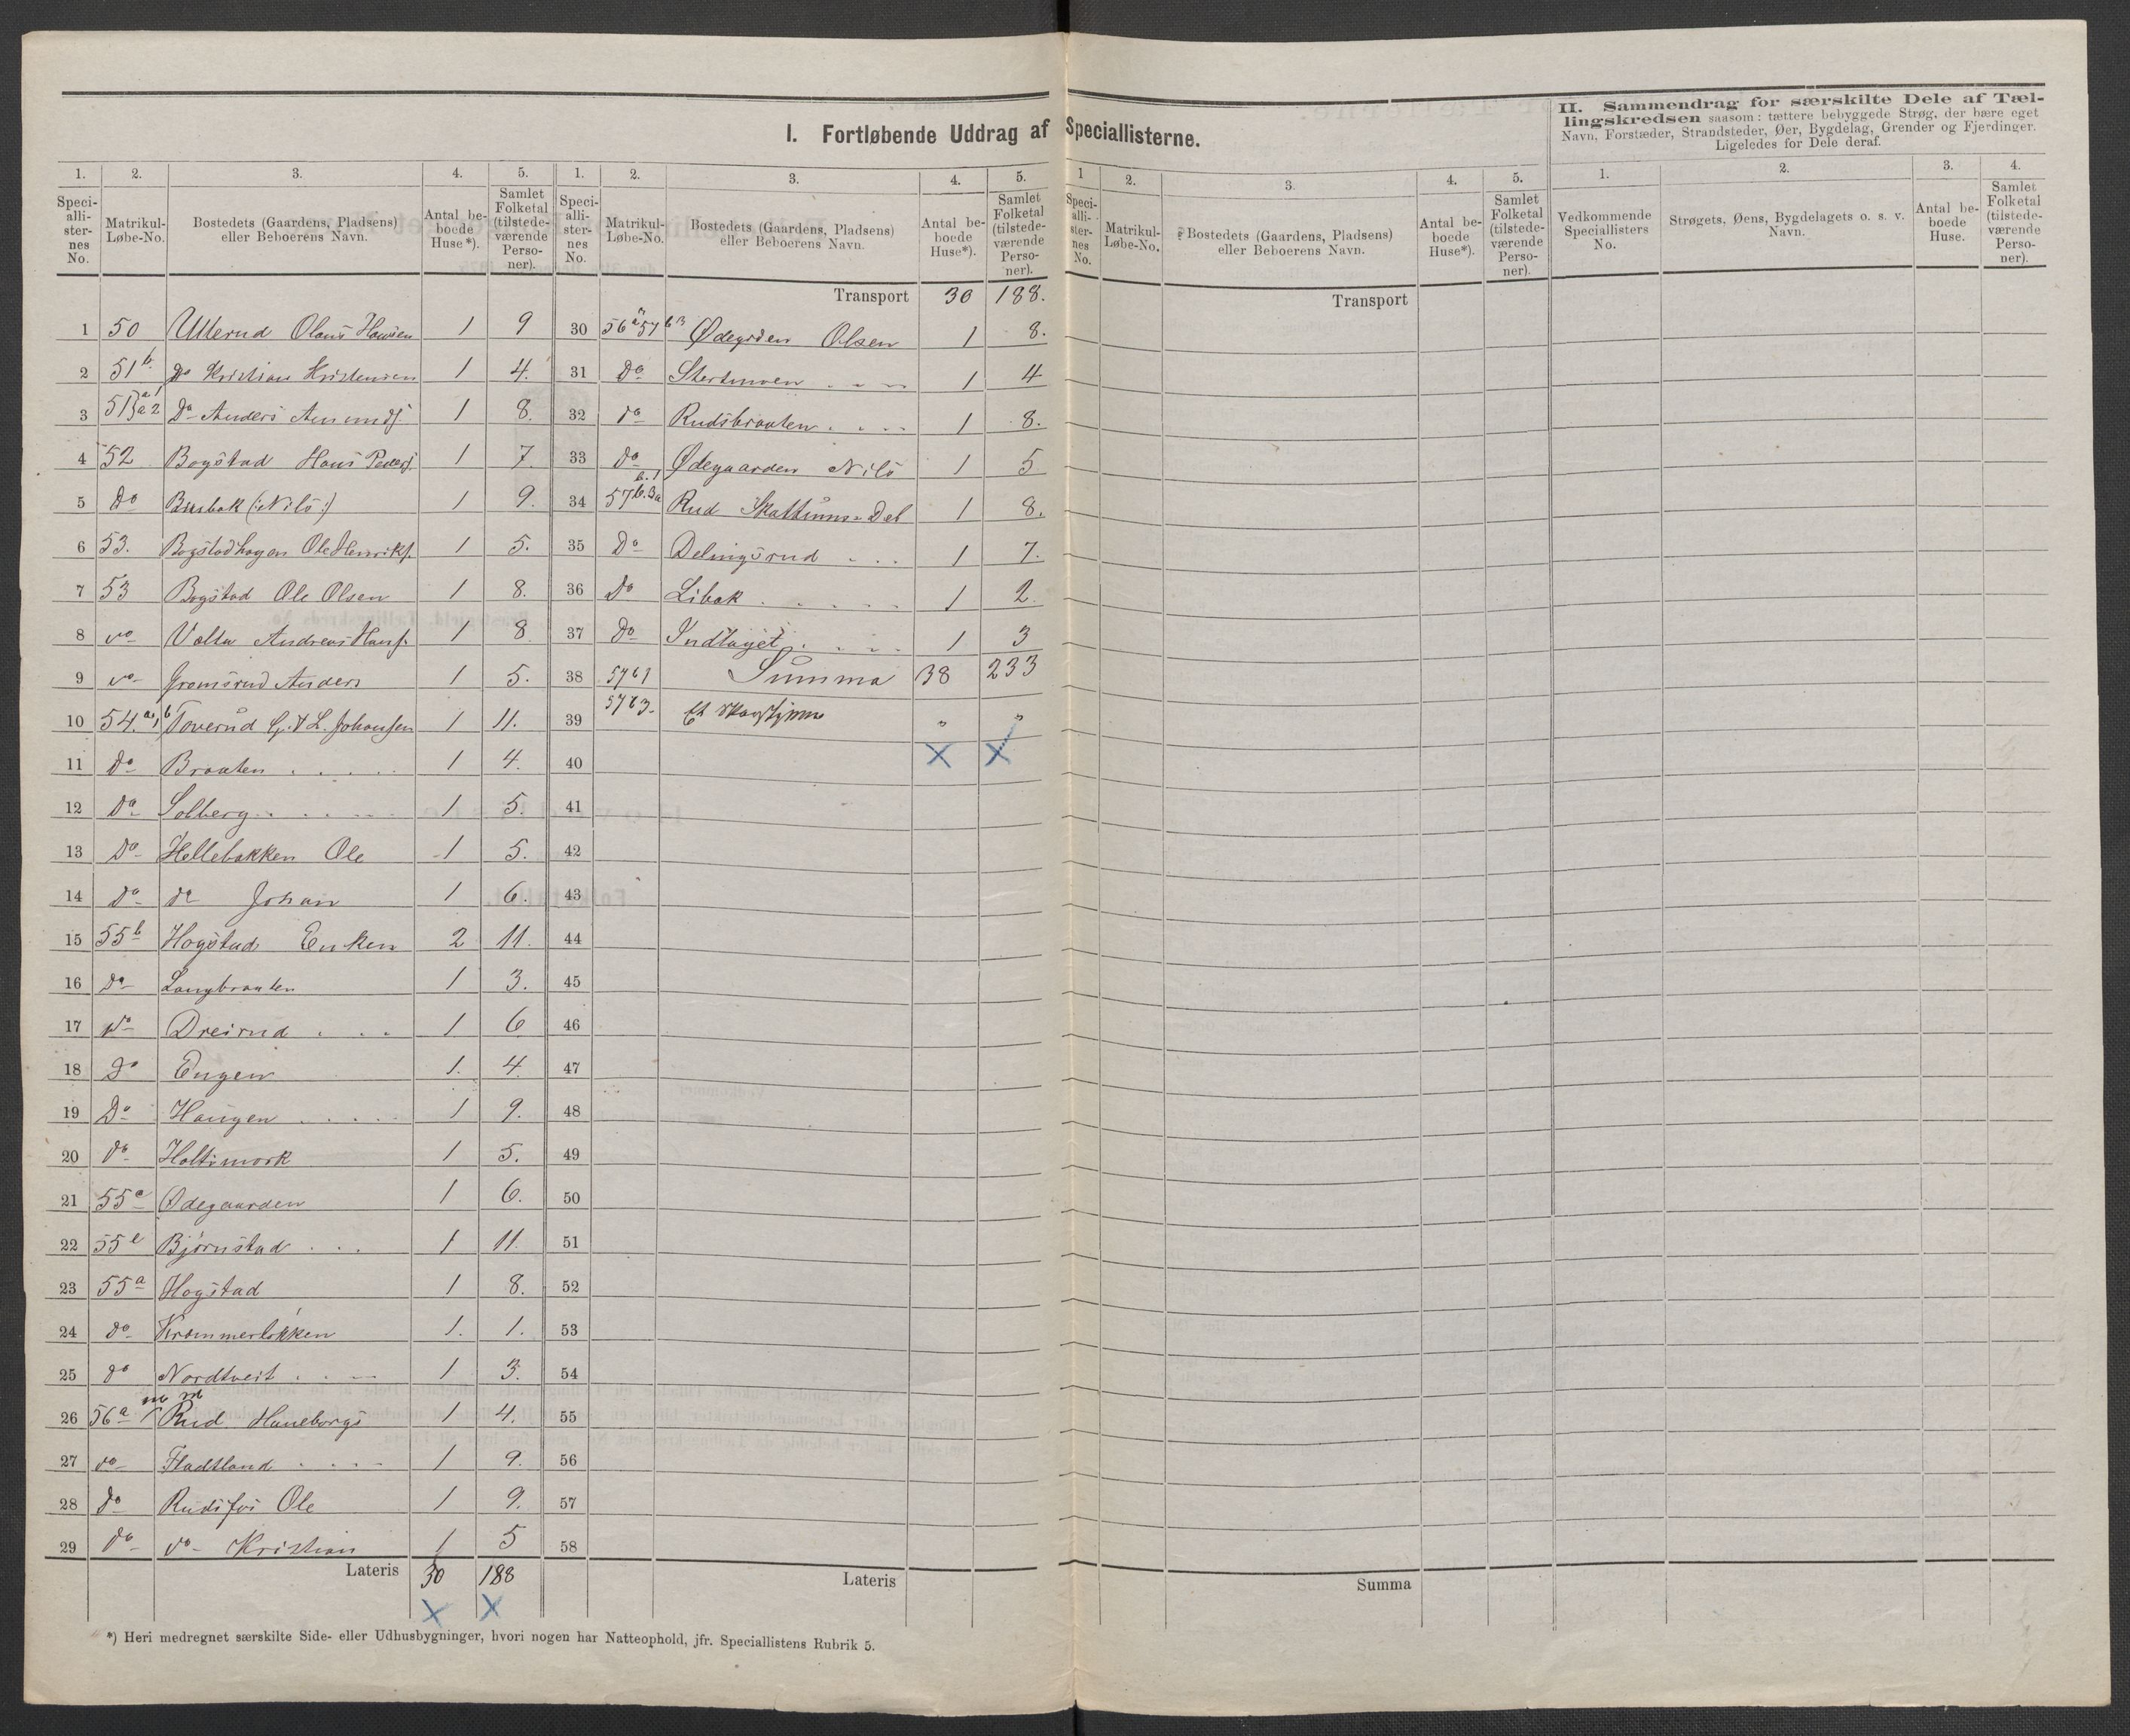 I. Fortløbende Uddrag af Speciallisterne.
1. 2. 3. 4. 5.
Speciallisternes No. Matrikul-Løbe-No. Bostedets (Gaardens, Pladsens) eller Beboerens Navn. Antal beboede Huse*). Samlet Folketal (tilstedeværende Personer).
1 50 Ullerud Olaus Hansen 1 9
2 51b Do Kristian Kristensen 1 4.
3 51 a1 a2 Do Anders Amunds. 1 8.
4 52 Bogstad Hans Peders. 1 7.
5 Do (:Nils:) 1 9.
6 53. Bogstadhagen Ole Henriks. 1 5.
7 53 Bogstad Ole Olsen 1 8.
8 do Vælta Andreas Hans. 1 8
9 do Gromsrud Anders 1 5.
10 54.a,b Toverud G. & L. Johansen 1 11.
11 do Braaten 1 4.
12 Do Solberg 1 5.
13 Do Hellebakken Ole 1 5.
14 do do Johan 1 6.
15 55b Hogstad Enken 2 11.
16 do Langbraaten 1 3.
17 do Dreirud 1 6
18 do Engen 1. 4.
19 Do Haugen 1 9.
20 do Holtsmork 1 5.
21 55a Ødegaarden 1 6.
22 55 Bjørnstad 1 11.
23 55a Hogstad 1 8.
24 do Krammerløkken 1. 1.
25 do Nordtveit 1 3.
26 56a Rud Haneborgs 1 4.
27 do Fladtland 1 9.
28 do Rudsfos Ole 1 9.
29 do do Kristian 1 5
Lateris 30 188
1. 2. 3. 4. 5.
Speciallisternes No. Matrikul-Løbe-No. Bostedets (Gaardens, Pladsens) eller Beboerens Navn. Antal beboede Huse*). Samlet Folketal (tilstedeværende Personer).
Transport 30 188.
30 56a 57 b3 Ødegrden Olsen 1 8.
31 do 1 4
32 do Rudsbraaten 1 8.
33 do Ødegaarden Nils 1 5
34 57 b.1 b.3a Rud Skattums Del 1 8.
35 Do Delingsrud 1 7.
36 Do Libak 1 2.
37 do Indlaget 1 3
38 57b1 Summa 38 233
39 57b3. Et " "
40
41
42
43
44
45
46
47
48
49
50
51
52
53
54
55
56
57
58
Lateris
1 2. 3. 4. 5.
Speciallisternes No. Matrikul-Løbe-No. Bostedets (Gaardens, Pladsens) eller Beboerens Navn. Antal beboede Huse*). Samlet Folketal (tilstedeværende Personer).
Transport
Summa
II. Sammendrag for særskilte Dele af Tæl-
lingskredsen saasom: tættere bebyggede Strøg, der bære eget
Navn, Forstæder, Strandsteder, Øer, Bygdelag, Grender og Fjerdinger.
Ligeledes for Dele deraf.
1. 2. 3. 4.
Vedkommende Speciallisters No. Strøgets, Øens, Bygdelagets o. s. v. Navn. Antal beboede Huse. Samlet Folketal (tilstedeværende Personer).
*) Heri medregnet særskilte Side- eller Udhusbygninger, hvori nogen har Natteophold, jfr. Speciallistens Rubrik 5.